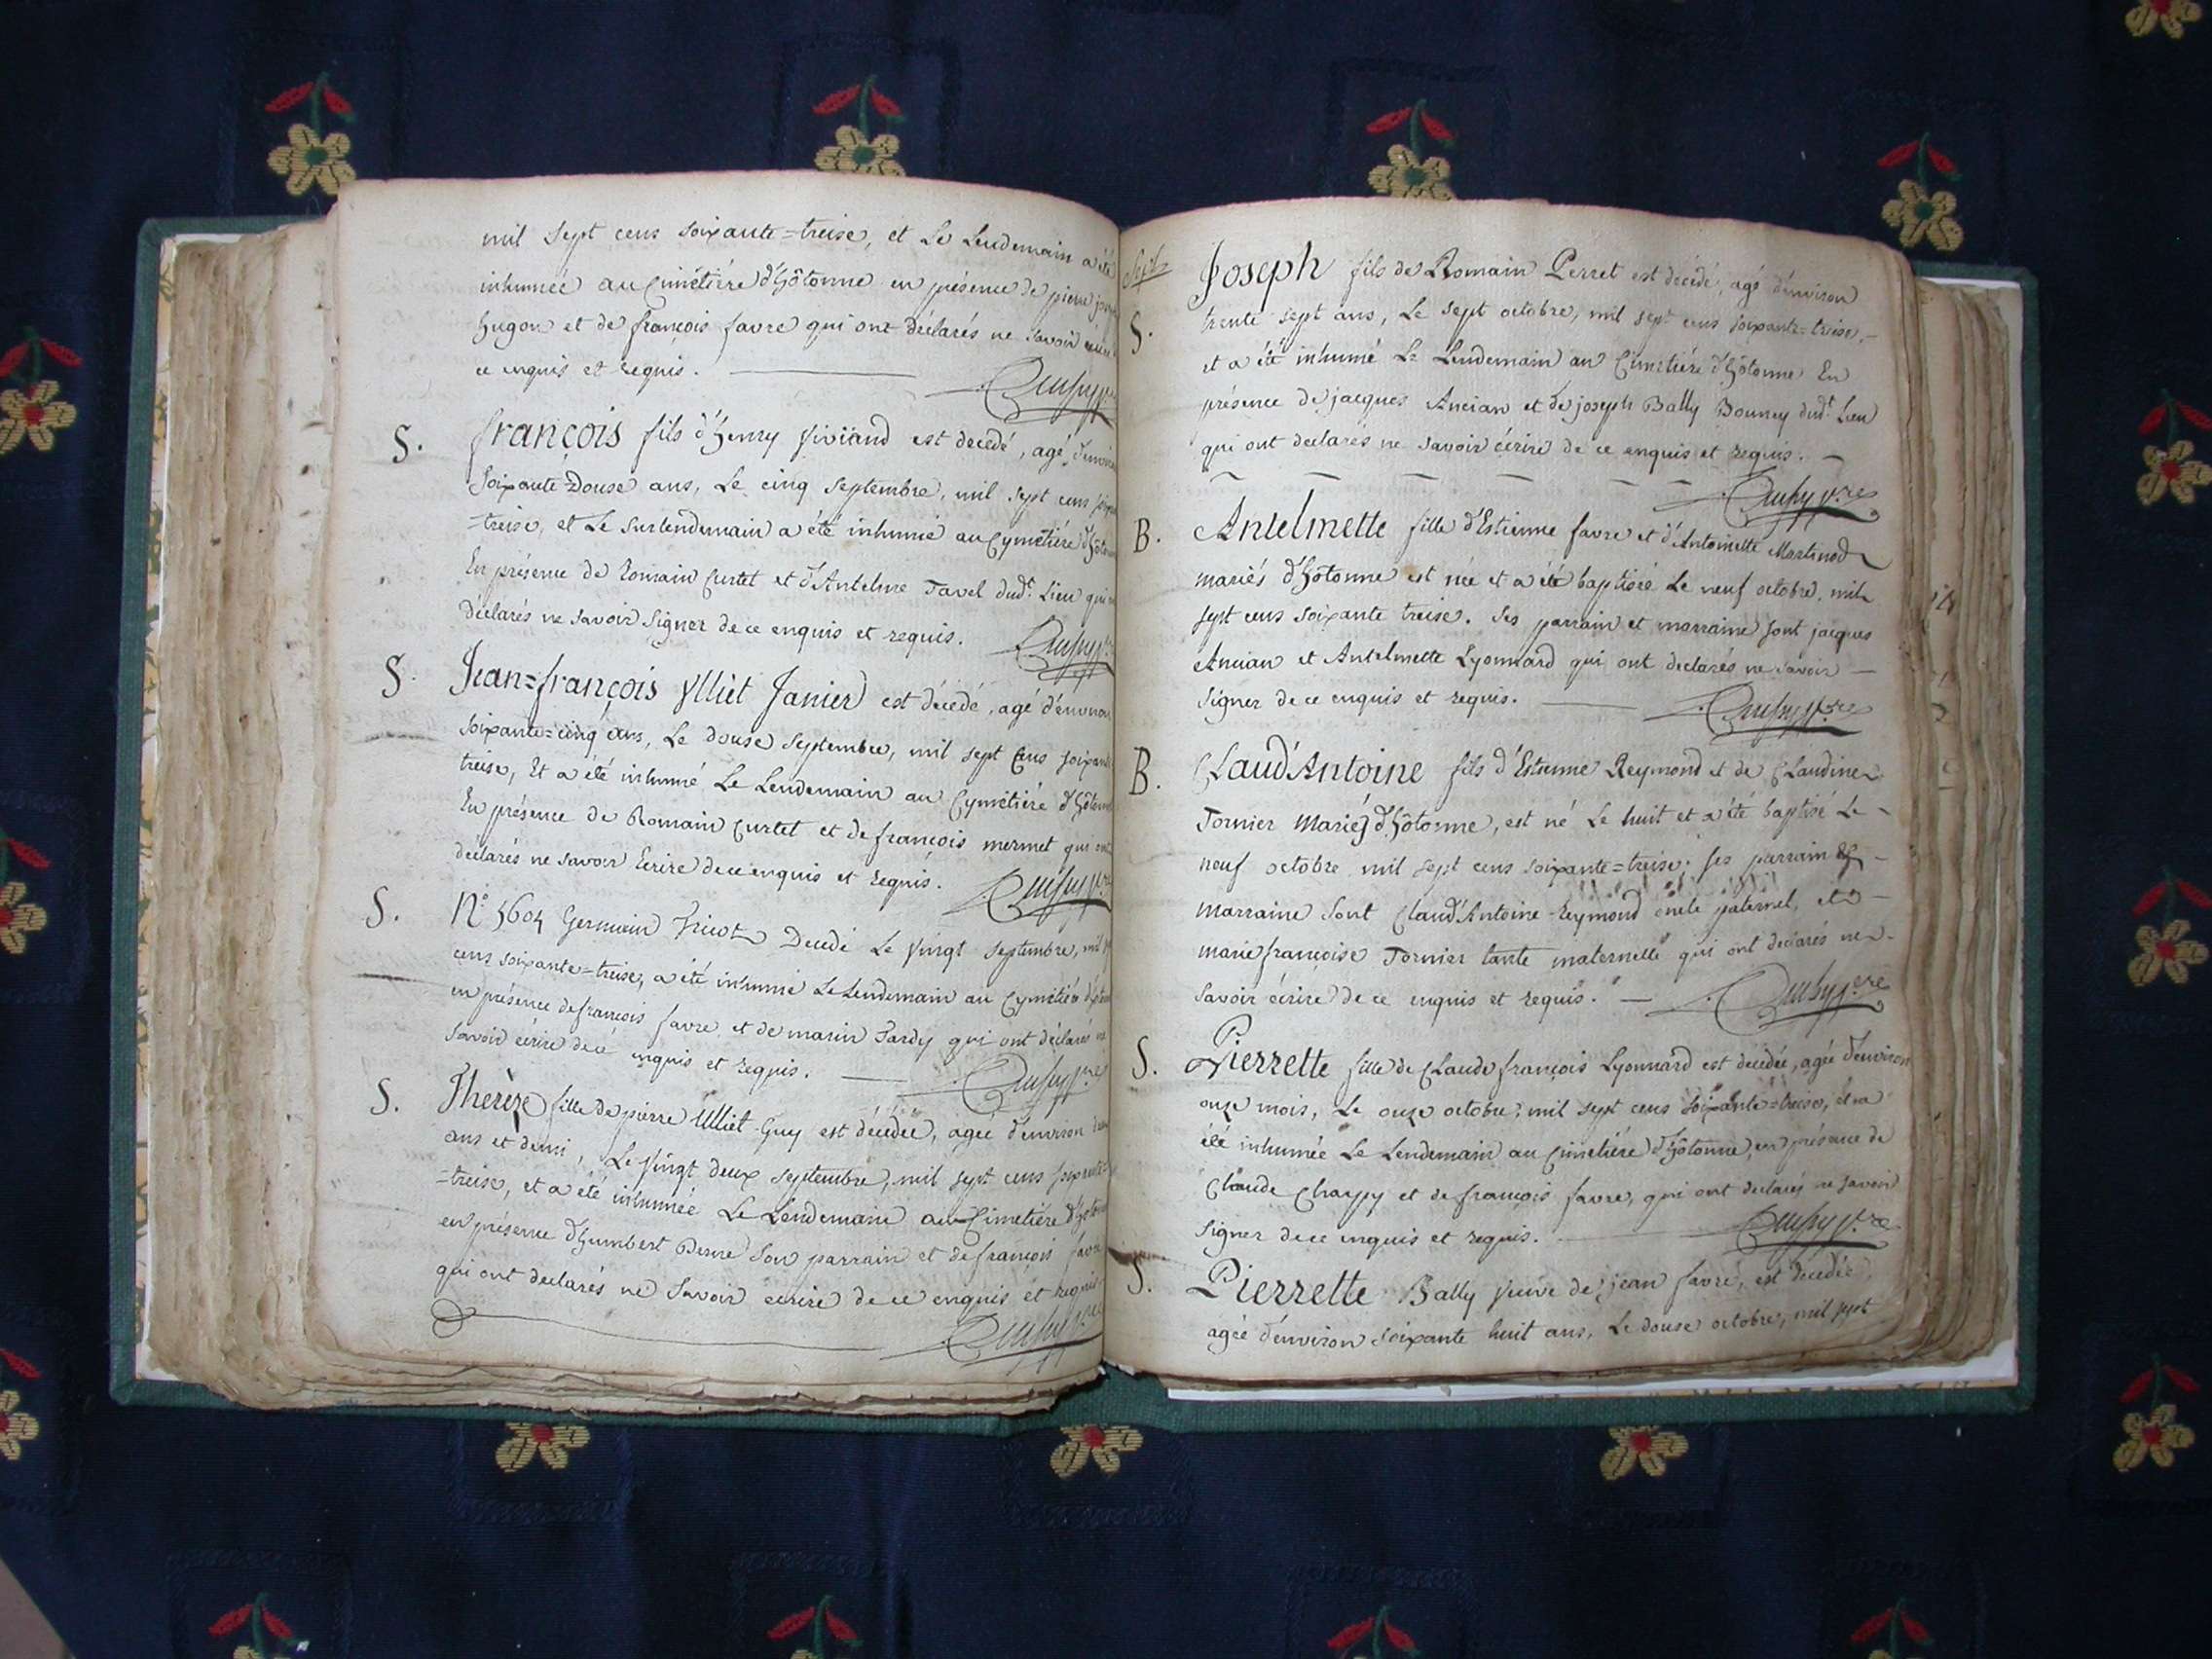 mil sept cens soixante=treise, et Le Lendemain a été
inhumée au Cimétiére d'hôtonne en présence de pierre
hugon et de françois favre qui ont déclarés ne savoir
ce enquis et requis.
S. françois fils d'henry Viviand est decedé, agé
Soixante Douse ans, Le cinq Septembre, mil sept cens
=treise, et Le Surlendemain a été inhumé au Cymétiére
En présence de Romain Curtet et d'Antelme Tavel dud.t Lieu qui
déclarés ne savoir Signer de ce enquis et requis.
S. Jean=françois Ylliet Janier est décédé, agé d'environ
soixante=cinq ans, Le douse Septembre, mil sept Cens
treise, Et a été inhumé Le Lendemain au Cymétiére d'hôtonne
En présence de Romain Curtet et de françois mermet qui ont
déclarés ne savoir Ecrire de ce enquis et requis.
S. N.o 5604 Germain Decedé Le Vingt Septembre, mil
cens soixante=treise, a été inhumé Le Lendemain au Cymétiére
en présence de françois favre et de marin Tardy qui ont déclarés ne
savoir écrire de ce enquis et requis.
S. Thérèze fille de pierre Ulliet-Guy est décédée, agée d'environ
ans et demi, Le Vingt deux Septembre, mil sept cens
=treise, et a été inhumée Le Lendemain au Cimetiére
en présence d'humbert son parrain et de françois favre
qui ont declarés ne Savoir ecrire de ce enquis et requis
Joseph fils de Romain Perret est décédé, agé d'environ
S. trente sept ans, Le sept octobre, mil sept cens soixante=treise,
et a été inhumé Le Lendemain au Cimetiére d'hôtonne En
présence de jacques Ancian et de joseph Bally Bouney dud.t Lieu
qui ont declarés ne savoir écrire de ce enquis et requis.
B. Antelmette fille d'Estienne favre et d'Antoinette Martinod
mariés d'hôtonne est née et a été baptisée Le neuf octobre, mil
sept cens soixante treise. ses parrain et marraine sont jacques
Ancian et Antelmette Lyonnard qui ont declarés ne savoir
signer de ce enquis et requis.
B. CLaud'Antoine fils d'Estienne Reymond et de CLaudine
Tornier Mariés d'hôtonne, est né Le huit et a été baptisé Le
neuf octobre mil sept cens soixante=treise. ses parrain et
Marraine sont Claud'Antoine Reymond oncle paternel, et
marie françoise Tornier tante maternelle qui ont declarés ne
Savoir écrire de ce enquis et requis.
S. Pierrette fille de CLaude françois Lyonnard est décédée, agée d'environ
onze mois, Le onze octobre, mil sept cens soixante=treise, et a
été inhumée Le Lendemain au Cimetiére d'hôtonne, en présence de
Claude Charpy et de françois favre, qui ont declarés ne savoir
signer de ce enquis et requis.
S. Pierrette Bally veuve de jean favre, est décédée,
agée d'environ soixante huit ans, Le douse octobre, mil sept